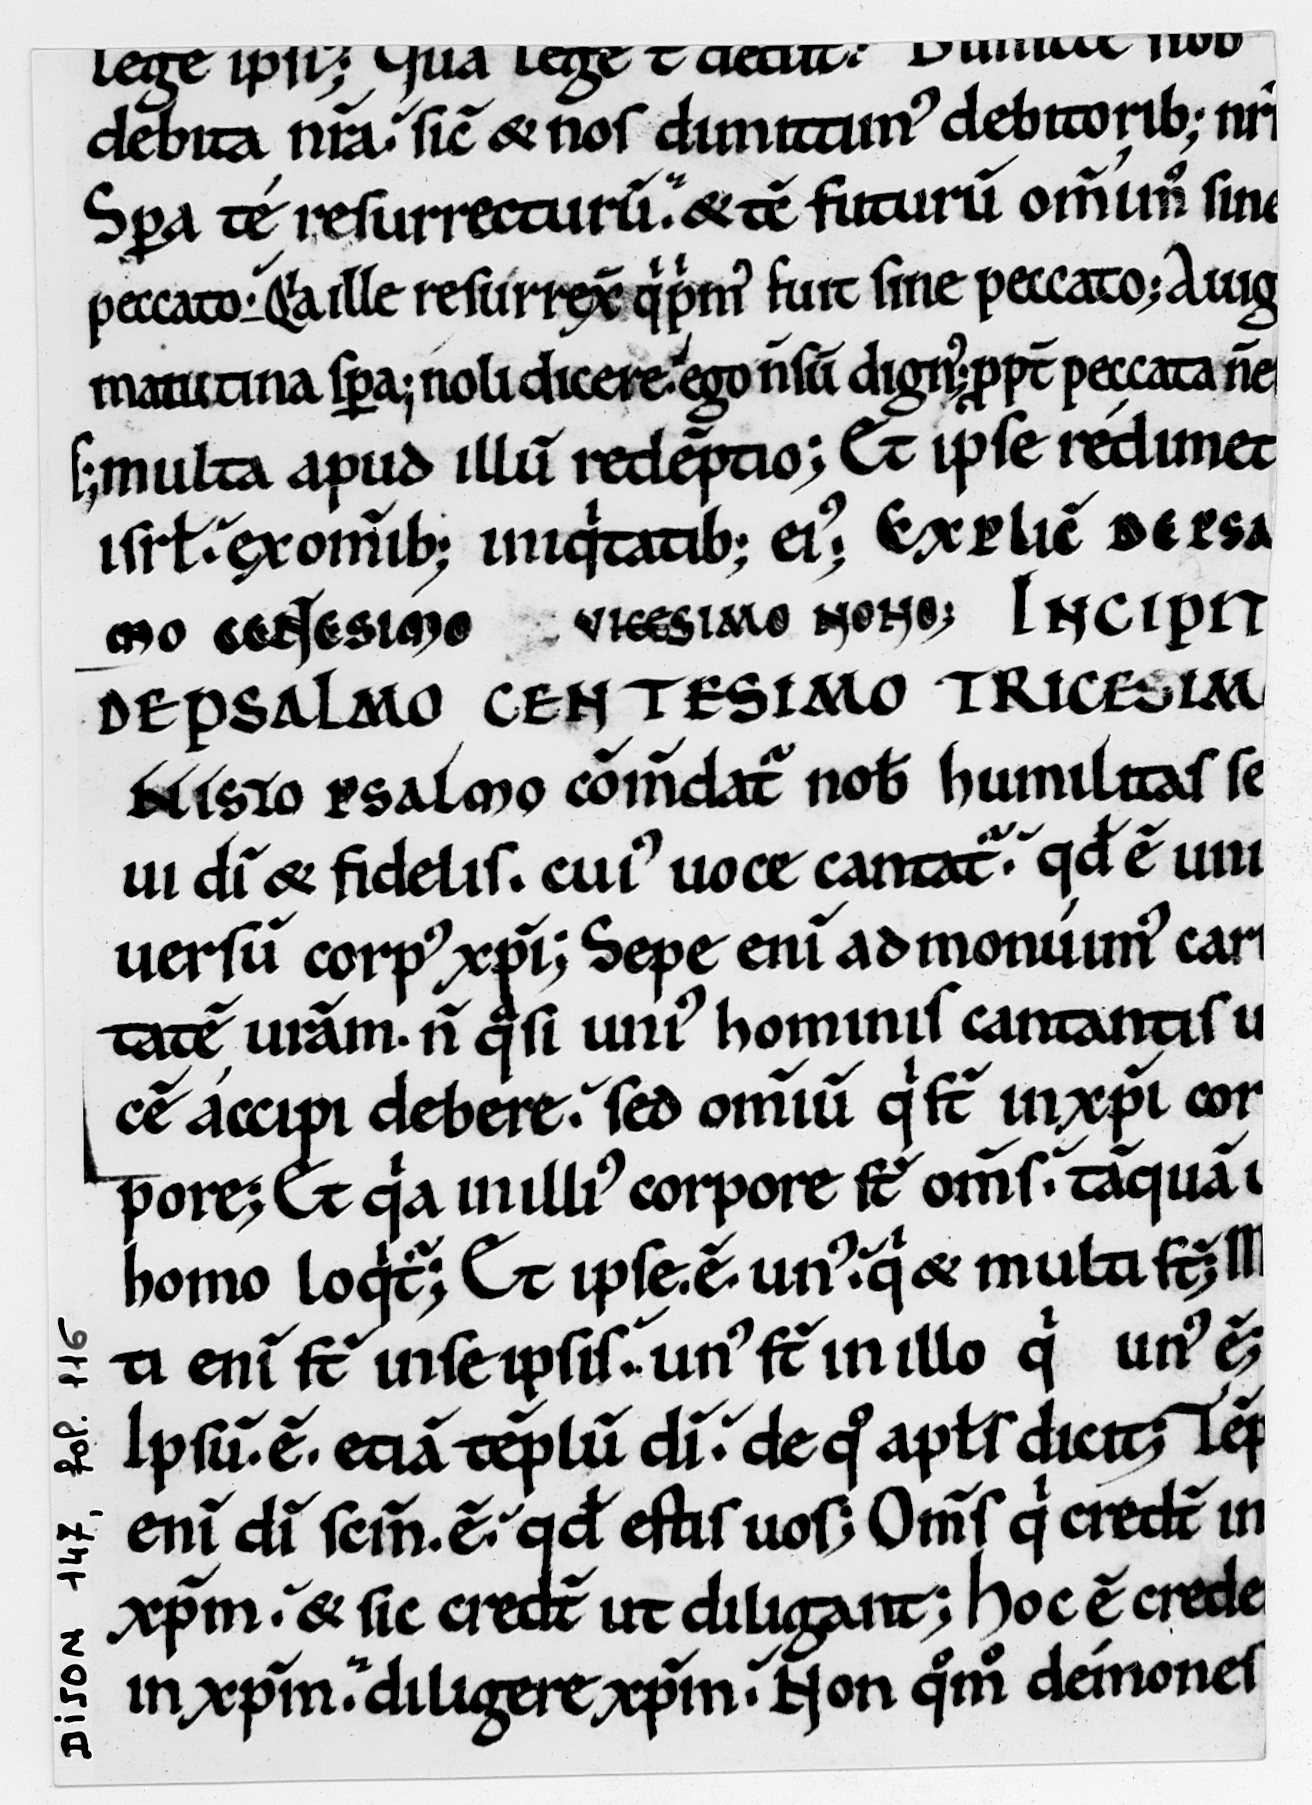 lege ipsi; Qua lege t̄ dedit? Dimitte nob
debita nr̄a. sic̄ & nos dimittim⁹ debitorib; nr̄i
Sp̄a té resurrecturū. & tc̄ futurū om̄ium͛ sine
peccato. Q̇a ille resurrex̄ q̇ ṗm⁹ fuit sine peccato; A uig
matutina sp̄a; noli dicere. ego n̄ sū dign⁹; ꝓpt̄ peccata n̄e
s; multa apud illū redēptio; Et ipse redimet
isrƚ. ex om̄ib; iniq̇tatib; ei⁹; Explic̄ DE PSA
MO CENTESIMO VICESIMO NONO; INCIPIT
DE PSALMO CENTESIMO TRICESIM
N ISTO PSALMO cōm̄dat᷑ nob̄ humilitas se
ui dī & fidelis. cui⁹ uoce cantat᷑. qd̄ ē uni
uersū corp⁹ xp̄i; Sepe enī admonúim⁹ cari
tatē ur̄am. n̄ q̊si uni⁹ hominis cantantis u
cē áccipi debere. sed om̄iū q̇ st̄ in xp̄i cor
pore; Et q̇a in illi⁹ corpore st̄ om̄s. tāquā i
homo loq̇t᷑; Et ipse. ē. un⁹. q̇ & multi st̄; M
ti enī st̄ in se ipsis. un⁹ st̄ in illo q̇ un⁹ ē;
Ipsū. ē. etiā tēplū dī. de q̊ apƚs dicit; Tēp
enī dī scm̄. ē. qd̄ estis uos; Om̄s q̇ credt̄ in
xp̄m. & sic credt̄ ut diligant; Hoc ē crede
in xp̄m. diligere xp̄m. Non q̊m͛ démones
DIJON 147, fol. 116